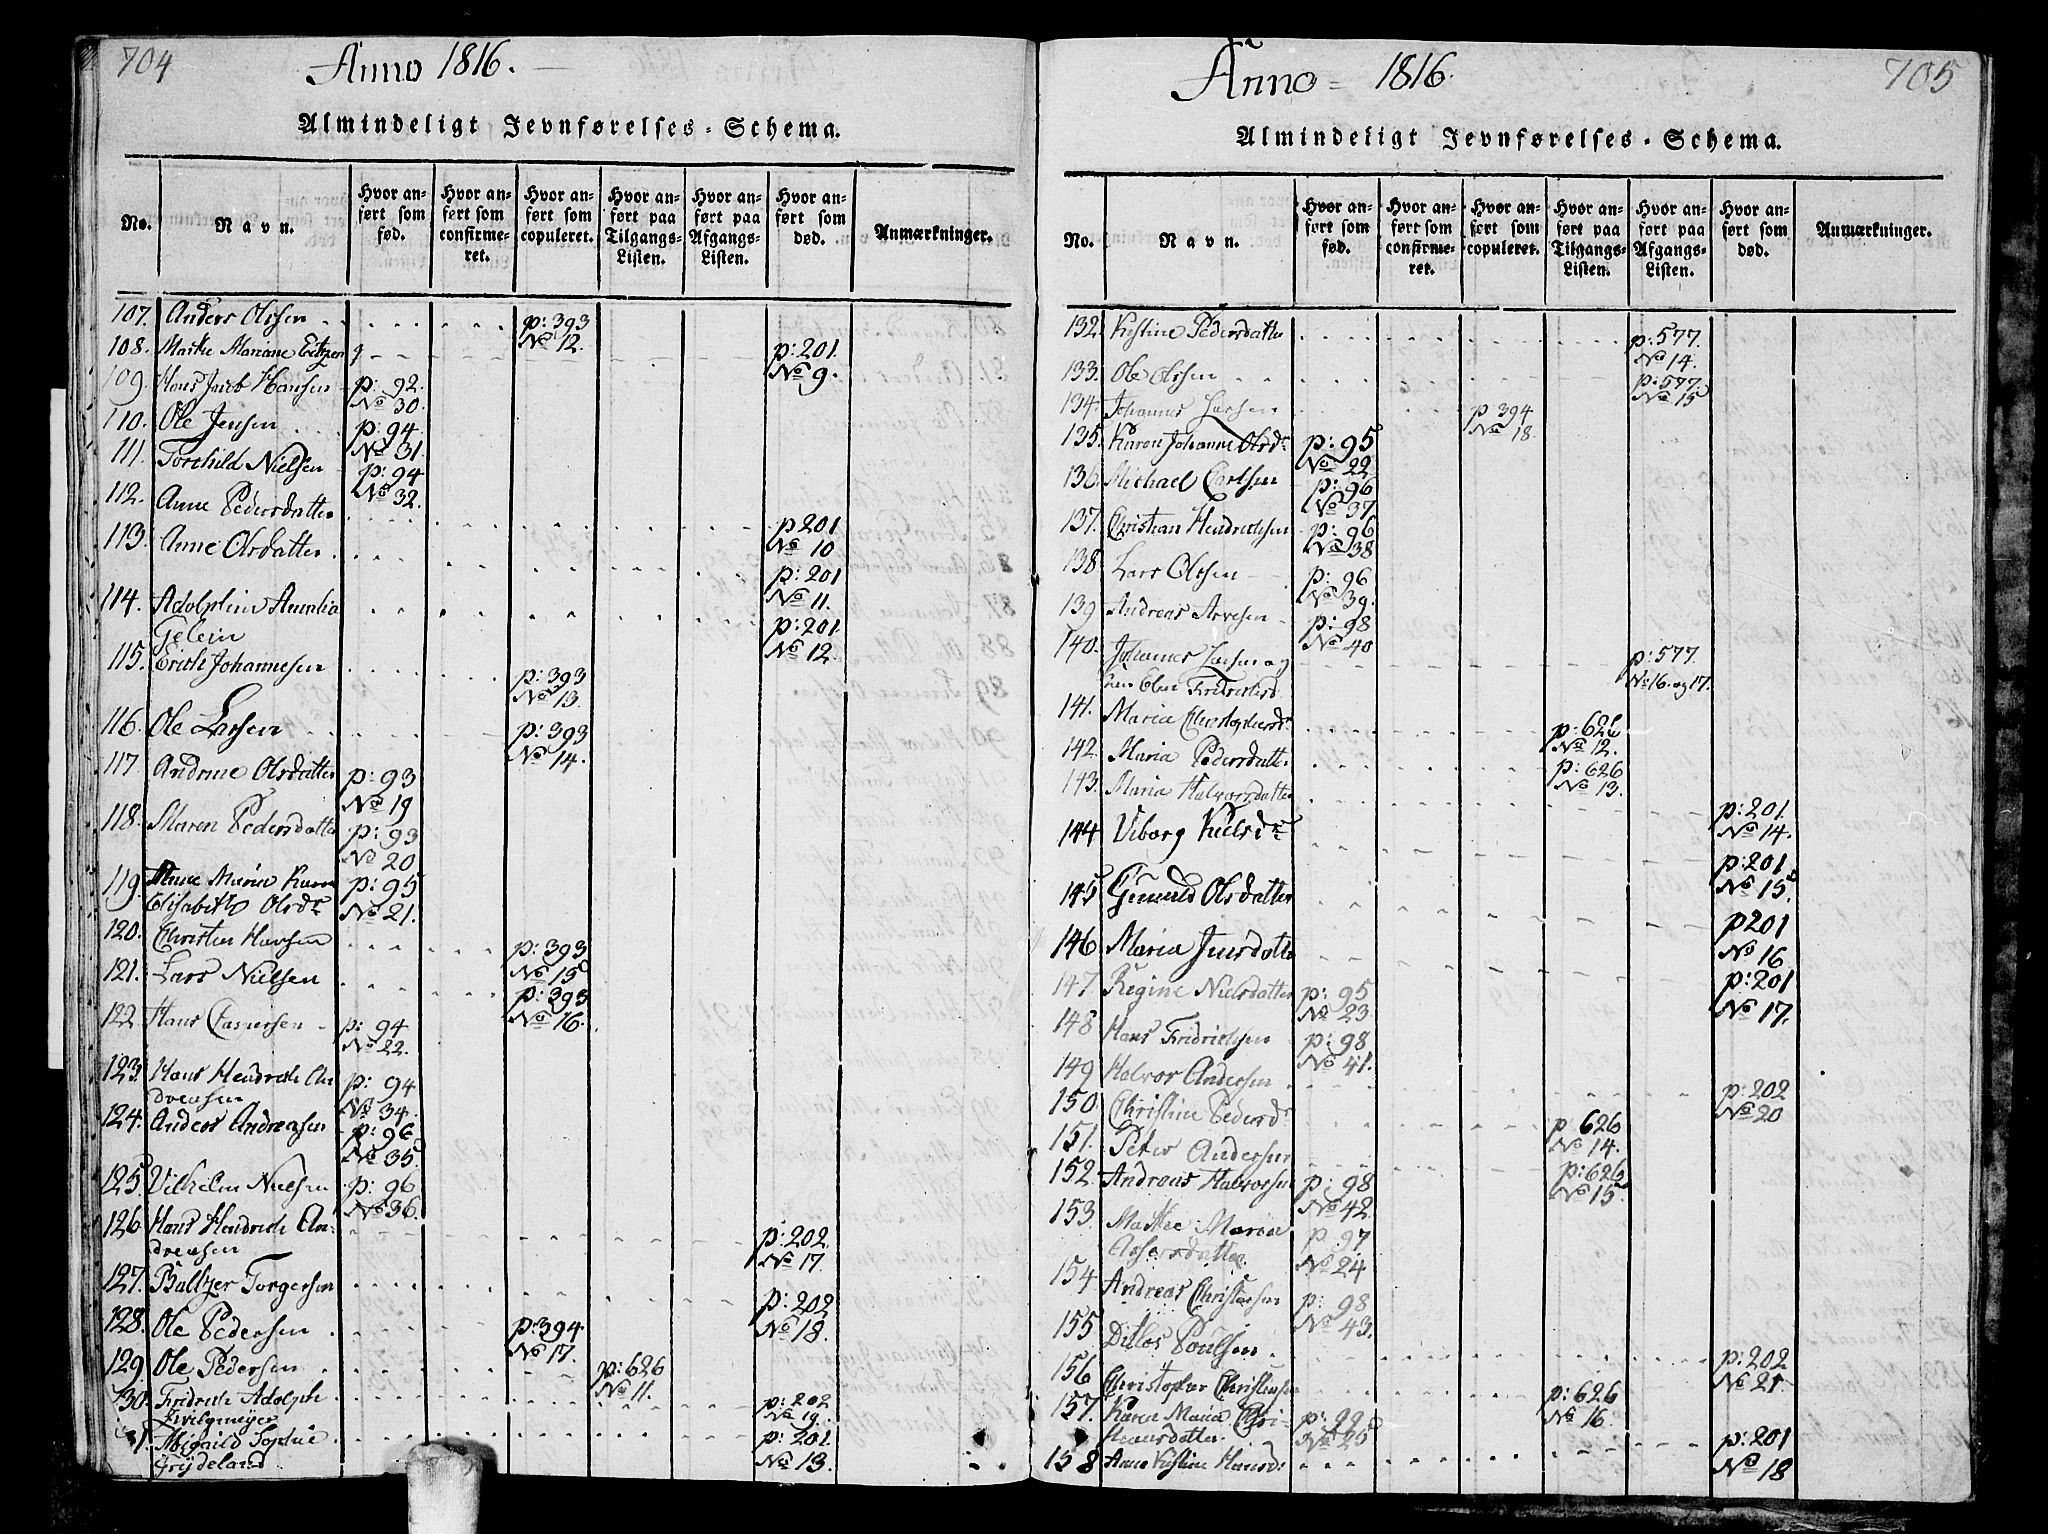 704
Anno 1816.
Almindeligt Jevnførelses-Schema.
No.
Navn.
Hvor an-
ført som
fød.
Hvor an-
ført som
confirme-
ret.
Hvor an-
ført som
copuleret.
Hvor an-
ført paa
Tilgangs-
Listen.
Hvor an-
ført paa
Afgangs-
Listen.
Hvor an-
ført som
død.
Anmærkninger.
107. Anders Olssen p: 393 No 12.
108. Marthe Mariane p: 201. No 9.
109. Hans Jacob Hansen p: 92. No 30.
110. Ole Jensen p: 94 No 31.
111. Torchild Nielsen p: 94 No 32.
112. Anne Pedersdatter p 201 No 10
113. Anne Olsdatter p: 201 No 11.
114. Adolphine Amalia
Gelein p: 201. No 12.
115. Erich Johannesen p: 393 No 13.
116. Ole Larsen p: 393 No 14.
117 Andrine Olsdatter p: 93 No 19
118. Maren Pedersdatter p: 93 No 20
119. Anne Maria Karen
Elisabeth Olsdr p: 95 No 21.
120. Christen Hansen p: 393 No 15
121. Lars Nielsen p: 393 No 16.
122 Hans Caspersen p: 94 No 22.
123. Hans Hendrich An
dreasen p: 94 No 34.
124. Anders Andreasen p: 96 No 35.
125. Vilhelm Nielsen p: 96 No 36.
126 Hans Hendrich An-
dreasen p: 202. No 17.
127. Baltzer Torgersen p: 202 No 18.
128. Ole Pedersen p: 394 No 17.
129. Ole Pedersen p: 626 No 11.
30. Fridrich Adolph
Zwilgmeyer p: 202 No 19.
1. Abigaild Sophie
Trydeland p: 201. No 13.
705
Anno 1816.
Almindeligt Jevnførelses-Schema.
No.
Navn.
Hvor an-
ført som
fød.
Hvor an-
ført som
confirme-
ret.
Hvor an-
ført som
copuleret.
Hvor an-
ført paa
Tilgangs-
Listen.
Hvor an-
ført paa
Afgangs-
Listen.
Hvor an-
ført som
død.
Anmærkninger.
132. Kistine Pedersdatter p: 577. No 14.
133. Ole Olssen p: 577. No 15
134. Johannes Larsen p 394 No 18.
135. Karen Johanne Olsdr p: 95 No 22
136. Michael Carlsen p: 96 No 37.
137. Christian Hendrichsen p: 96 No 38
138 Lars Olssen p: 96 No 39.
139 Andreas Arvesen p: 98 No 40
140. Johannes Larsen og
Elen Fridrichsd. p: 577. No 16. og 17.
141. Maria Christophersdr p: 626 No 12.
142. Maria Pedersdatter p: 626 No 13.
143. Maria Halvorsdatter p: 201. No 14.
144 Viborg Kielsdr p: 201 No 15.
145 Gunnild Olsdatter p 201 No 16
146 Maria Jensdatter p: 201 No 17.
147. Regine Nielsdatter p: 95 No 23
148 Hans Fridrichsen p: 98 No 41.
149 Halvor Andersen p: 202 No 20
150. Christine Pedersdr p 626 No 14.
151. Peter Andersen p: 626 No 15
152. Andreas Halvorsen p: 98 No 42.
153. Marthe Maria
Assersdatter p 97 No 24
154 Andreas Christensen p: 98 No 43.
155 Ditlof Poulsen p: 202 No 21
156 Christopher Christensen p: 626 No 16.
157. Karen Maria Chri-
stensdatter No 25
158 Anne Kistine Hansd: p: 201 No 18